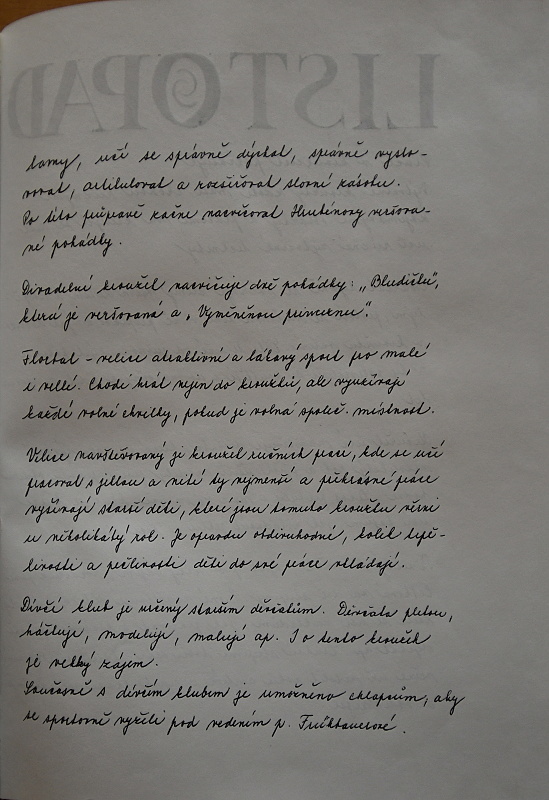 tomy, učí se správně dýchat, správně vyslo-
vovat, artikulovat a rozšiřovat slovní zásobu.
Po této průpravě začne nacvičovat Hrubínovy veršova-
né pohádky.
Divadelní kroužek nacvičuje dvě pohádky: „Bludičku",
která je veršovaná a „Vyměněnou princeznu".
Florbal - velice atraktivní a lákavý sport pro malé
i velké. Chodí hrát nejen do kroužků, ale využívají
každé volné chvilky, pokud je volná společ. místnost.
Velice navštěvovaný je kroužek ručních prací, kde se učí
pracovat s jehlou a nití ty nejmenší a překrásné práce
vyšívají starší děti, které jsou tomuto kroužku věrni
už několikátý rok. Je opravdu obdivuhodné, kolik trpě-
livosti a pečlivosti děti do své práce vkládají.
Dívčí klub je určený starším děvčatům. Děvčata pletou,
háčkují, modelují, malují ap. I o tento kroužek
je velký zájem.
Současně s dívčím klubem je umožněno chlapcům, aby
se sportovně vyžili pod vedením p. Frühbauerové.
LISTOPAD